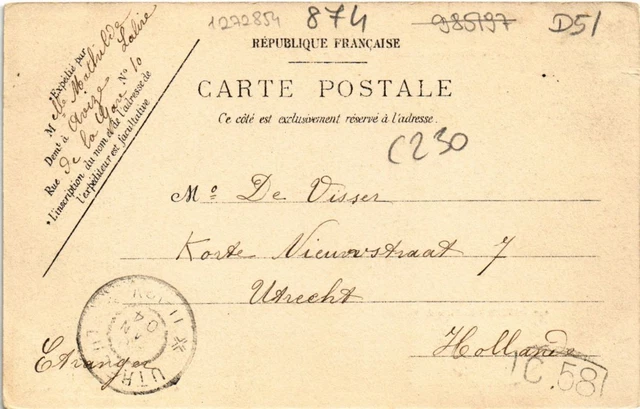 1272854 874 985197 D51
RÉPUBLIQUE FRANÇAISE
CARTE POSTALE
Ce côté est exclusivement réservé à l'adresse.
C230
Expédié par
M elle Mathilde Laline
Domt à Avize
Rue de la Gare N° 10
*L'inscription du nom et de l'adresse de
l'expéditeur est facultative
M° De Visser
Korte Nieuwstraat 7
Utrecht
Hollande
Etranger
UTRECHT
C 58